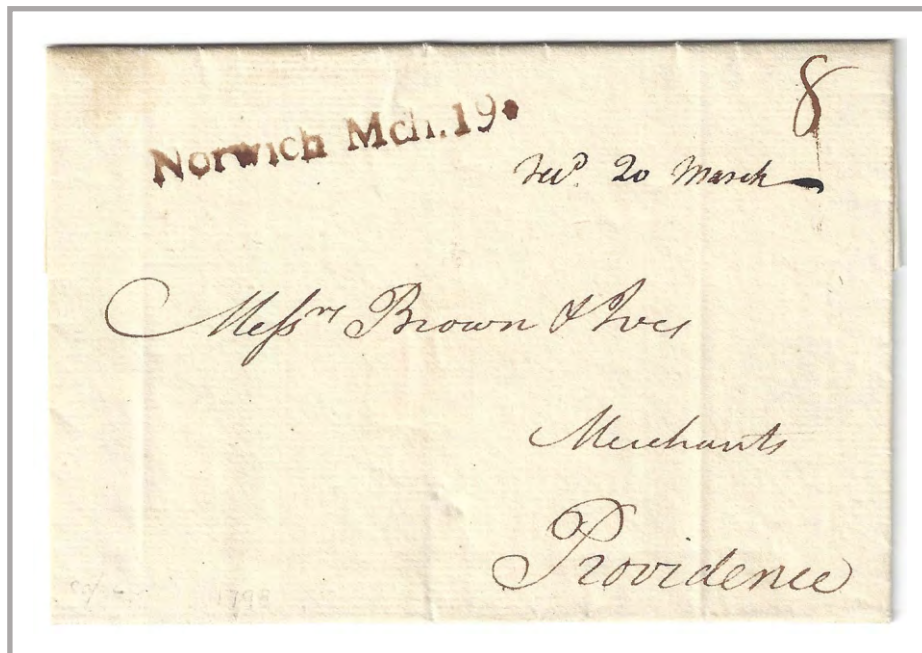 8
Norwich Mch. 19
Recd. 20 March
Messrs Brown & Ives
Merchants
Providence